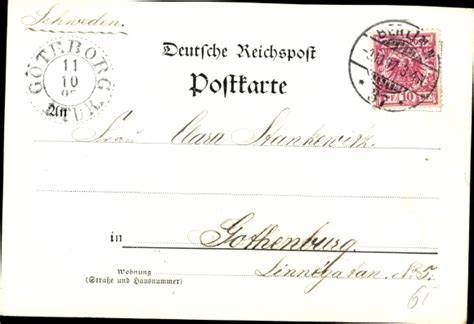 Schweden.
GÖTEBORG
11
10
AFTUR
BERLIN
10
Deutsche Reichspost
Postkarte
Frau Clara Stankewitz.
in Gothenburg.
Wohnung
(Straße und Hausnummer)
Linnégatan. No 5.